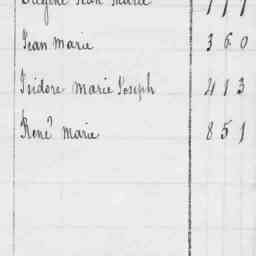 Eugène Jean Marie 777
Jean Marie 360
Isidore Marie Joseph 413
René Marie 851